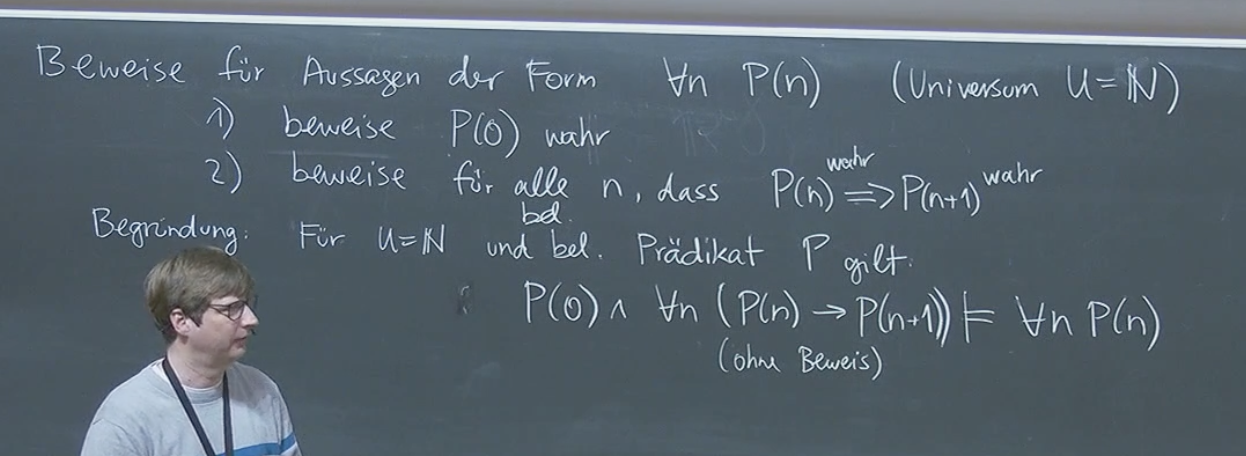 Beweise für Aussagen der Form ∀n P(n) (Universum U=ℕ)
1) beweise P(0) wahr
2) beweise für alle n, dass P(n) wahr => P(n+1) wahr
bel.
Begründung: Für U=ℕ und bel. Prädikat P gilt:
P(0) ∧ ∀n (P(n) → P(n+1)) ⊨ ∀n P(n)
(ohne Beweis)